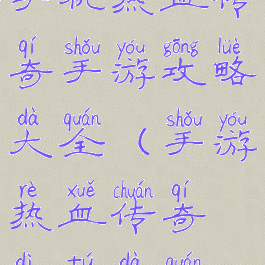 手机热血传
qí shǒu yóu gōng lüè
奇手游攻略
dà quán shǒu yóu
大全(手游
rè xuè chuán qí
热血传奇
dì tú dà quán